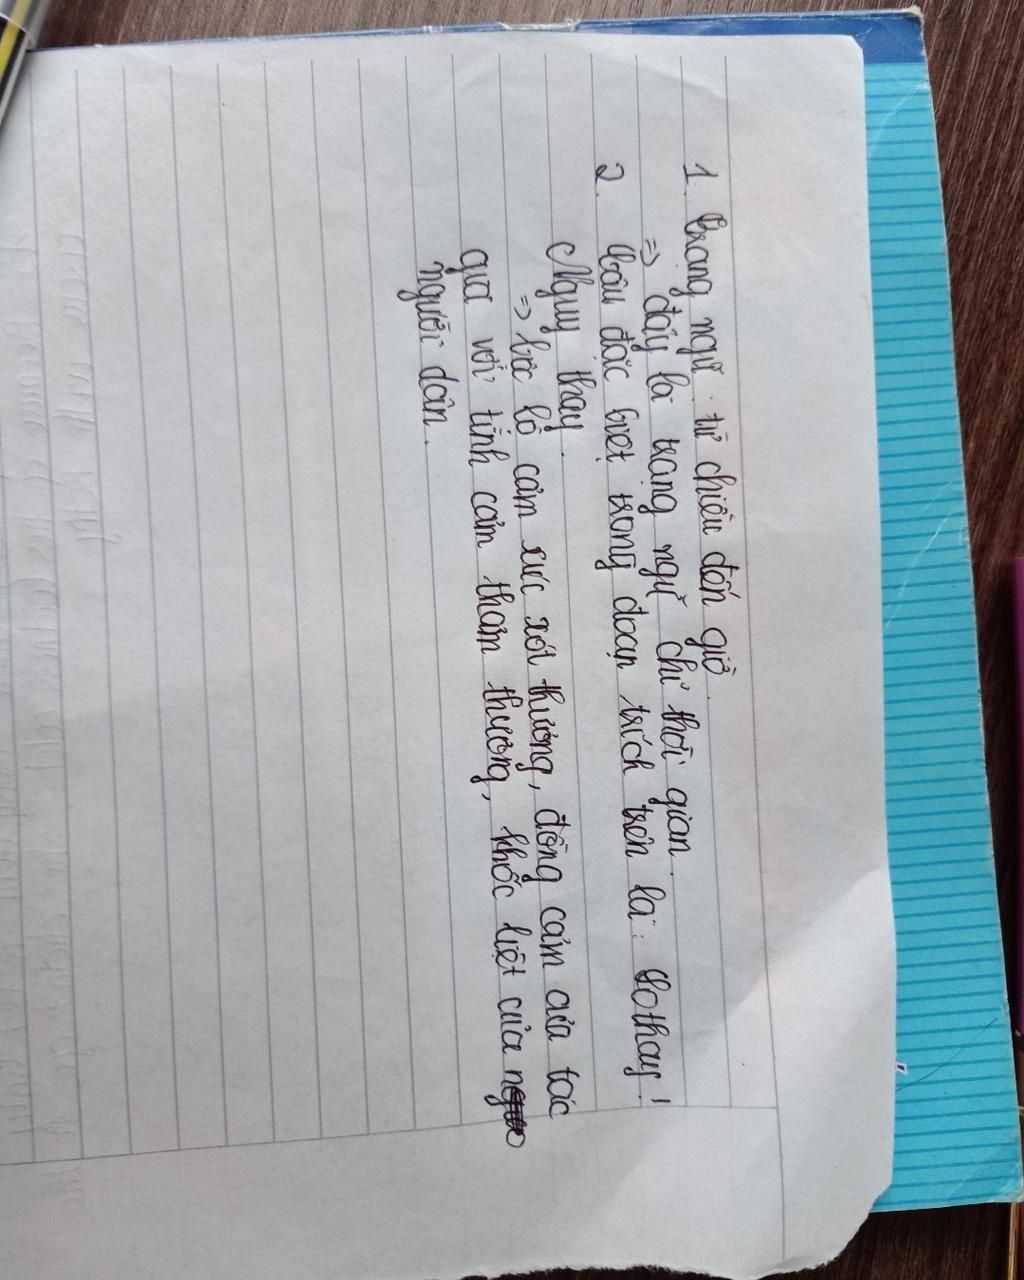 1. Trạng ngữ: từ chiều đến giờ.
=> đây là trạng ngữ chỉ thời gian.
2. Câu đặc biệt trong đoạn trích trên là: Lo thay!
Nguy thay.
=> bộc lộ cảm xúc xót thương, đồng cảm của tác
giả với tình cảm thảm thương, khốc liệt của
người dân.